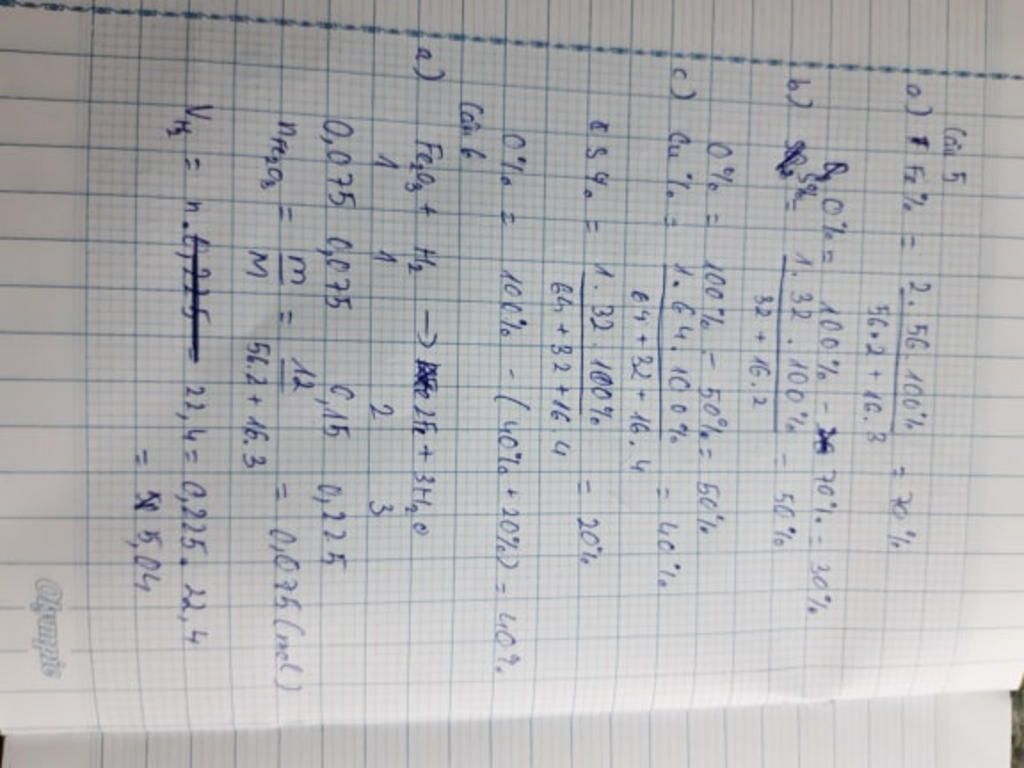 Câu 5
a) Fe% = 2.56.100% / 56.2 + 16.3 = 70%
O% = 100% - 70% = 30%
b) S% = 1.32.100% / 32 + 16.2 = 50%
O% = 100% - 50% = 50%
c) Cu% = 1.64.100% / 64 + 32 + 16.4 = 40%
S% = 1.32.100% / 64 + 32 + 16.4 = 20%
O% = 100% - (40% + 20%) = 40%
Câu 6
a) Fe2O3 + H2 → 2Fe + 3H2O
1 1 2 3
0,075 0,075 0,15 0,225
nFe2O3 = m/M = 12 / 56.2 + 16.3 = 0,075 (mol)
VH2 = n. 22,4 = 0,225. 22,4
= 5,04
Olympic